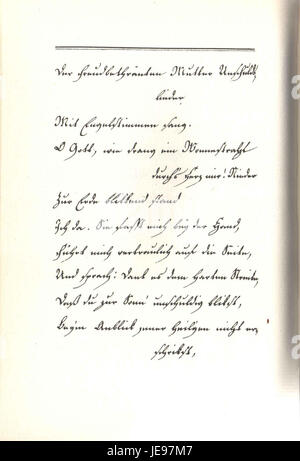 Der freudbethränten Mutter Unschulds,
lieder
Mit Engelstimmen sang.
O Gott, wie drang ein Wonnestrahl
durch's Herz mir! Nieder
Zur Erde blickend stand
Ich da. Sie faßt mich bey der Hand,
Führt mich vertraulich auf die Seite,
Und sprach: Dank es dem harten Streite,
Daß du zur Sonn' unschuldig blikst,
Beym Anblick jener Heilgen nicht er,
schrikst,
alamy
Image ID: JE97M7
www.alamy.com